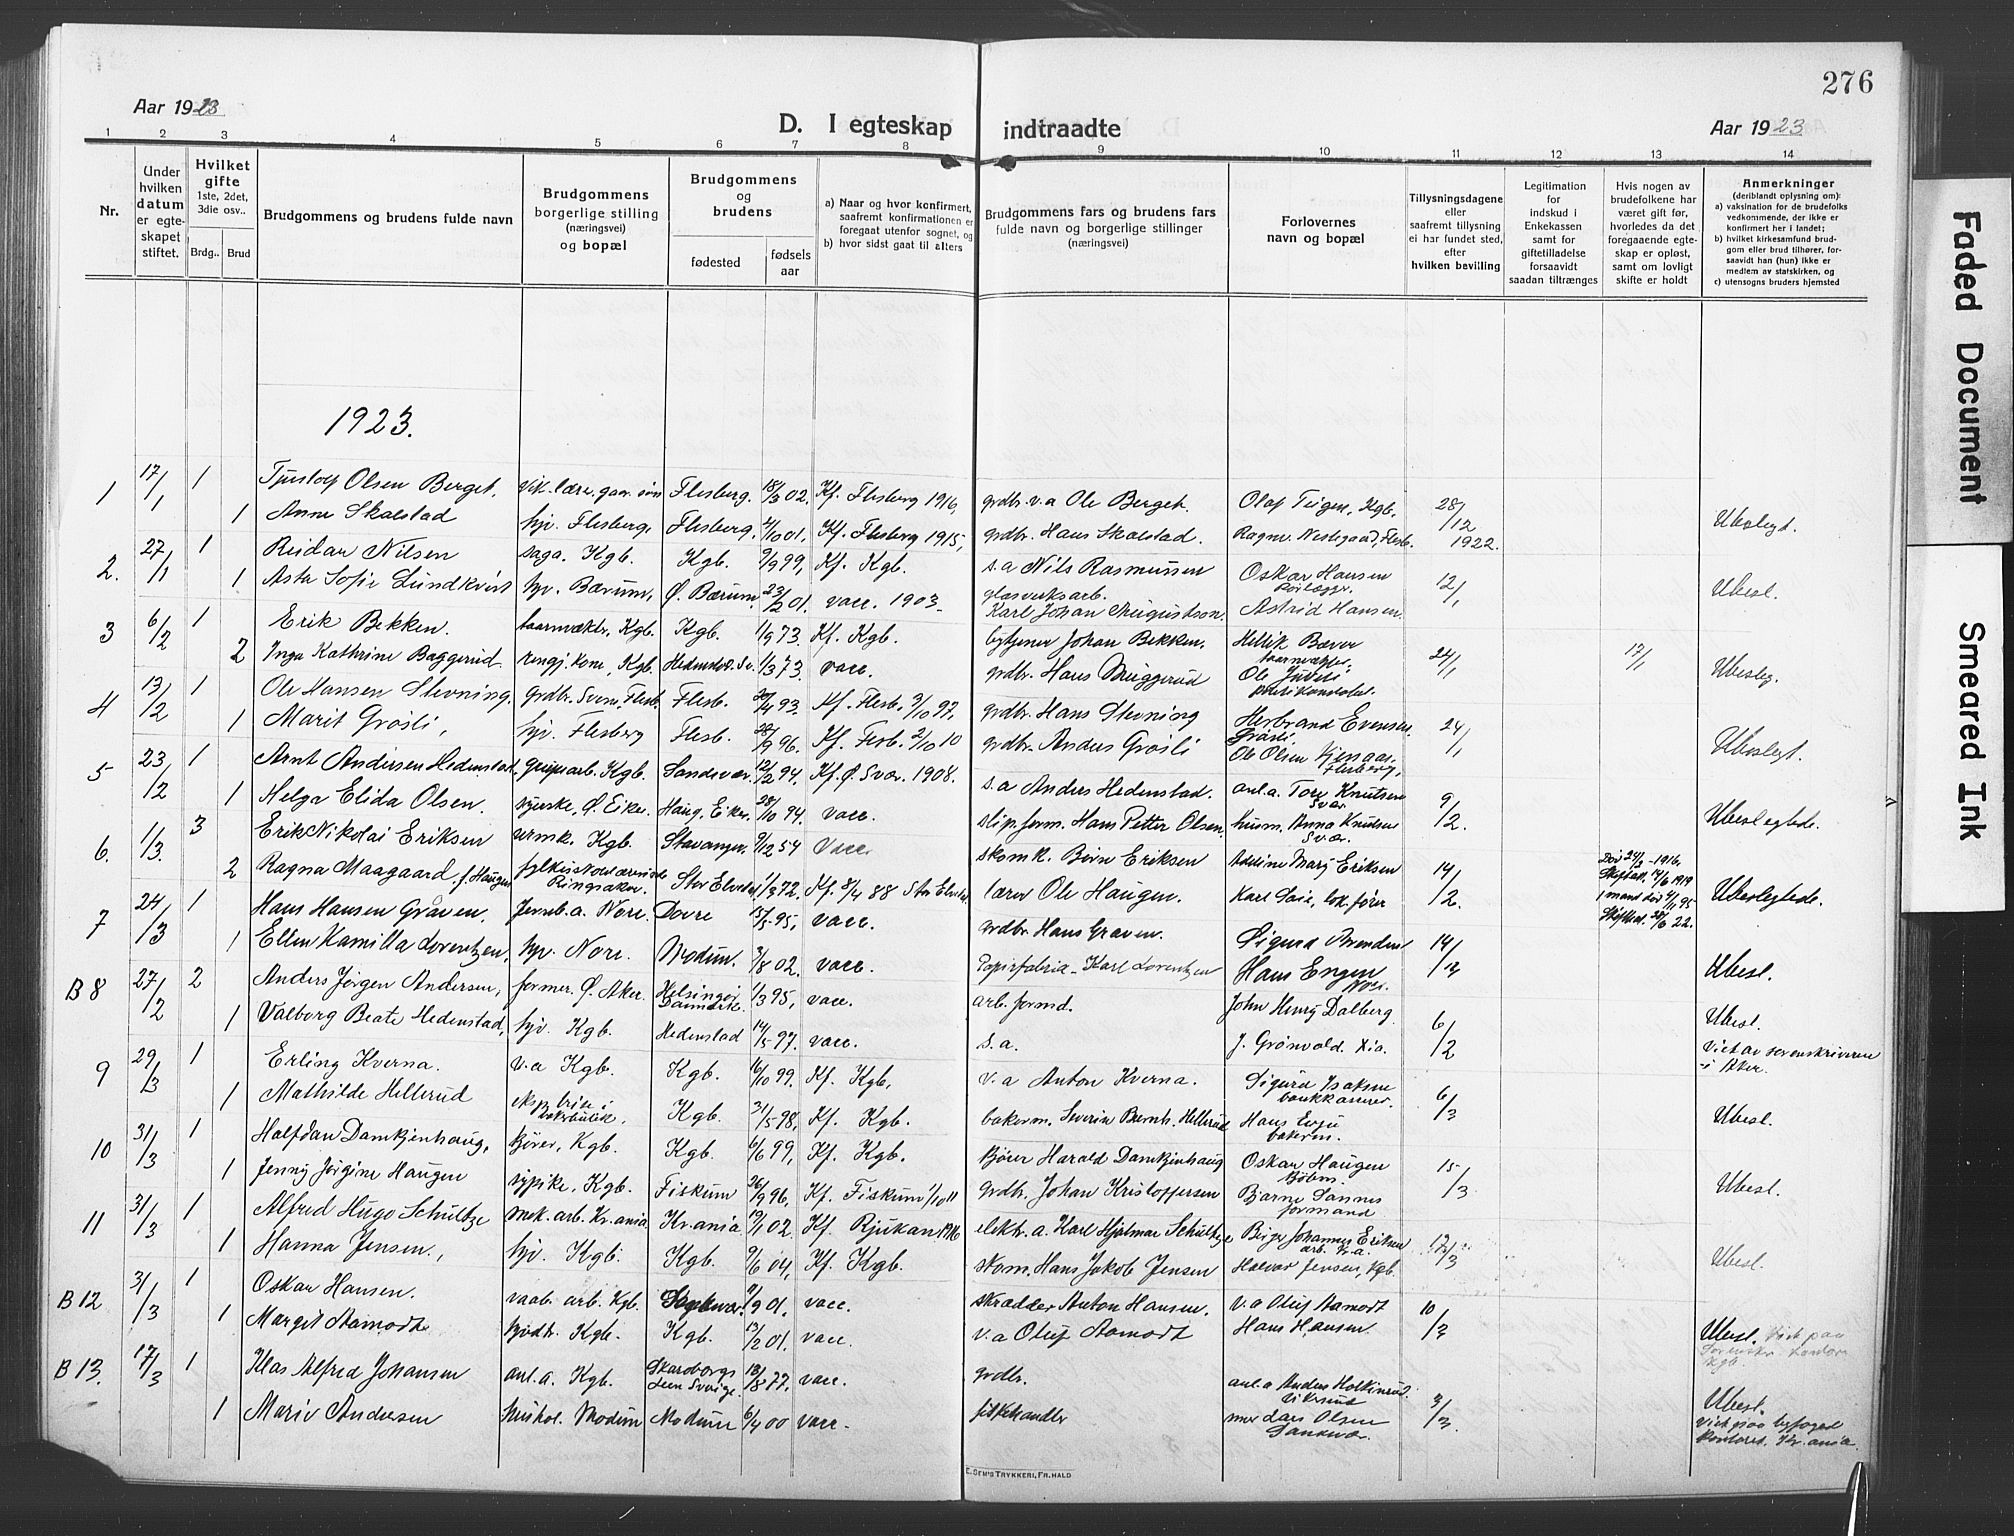 276
Aar 1923
D. I egteskap indtraadte
Aar 1923
1 2 3 4 5 6 7 8 9 10 11 12 13 14
Nr.
Under hvilken datum er egteskapet stiftet.
Hvilket gifte
1ste, 2det, 3die osv..
Brdg.. Brud
Brudgommens og brudens fulde navn
Brudgommens borgerlige stilling (næringsvei) og bopæl
Brudgommens og brudens
fødested
fødsels aar
a) Naar og hvor konfirmert, saafremt konfirmationen er foregaat utenfor sognet, og
b) hvor sidst gaat til alters
Brudgommens fars og brudens fars fulde navn og borgerlige stillinger (næringsvei)
Forlovernes navn og bopæl
Tillysningsdagene eller saafremt tillysning ei har fundet sted, efter hvilken bevilling
Legitimation for indskud i Enkekassen samt for giftetilladelse forsaavidt saadan tiltrænges
Hvis nogen av brudefolkene har været gift før, hvorledes da det foregaaende egteskap er opløst, samt om lovligt skifte er holdt
Anmerkninger
(deriblandt oplysning om):
a) vaksination for de brudefolks vedkommende, der ikke er konfirmert her i landet;
b) hvilket kirkesamfund brudgom eller brud tilhører, forsaavidt han (hun) ikke er medlem av statskirken, og
c) utensogns bruders hjemsted
1923.
1 17/1 1 Olsen Berget, Flesberg. 18/3 02. Kf. Flesberg 1916, grdbr. v.a Ole Berget. Olaf Teigen, Kgb. 28/12 1922.
1 Anne Skalstad hjv. Flesberg, Flesberg. Kf. Flesberg 1915, grdbr. Hans Skalstad. Ubeslegt.
2. 27/1 1 Reidar Nilsen saga. Kgb. Kgb. 9/9 99, Kf. Kgb. s.a Nils Rasmussen Oskar Hansen 12/1
1 Asta Sofie Lundkvist hjv. Bærum, Ø. Bærum. 23/2 01. vacc. 1903. glasverksarb. Karl Johan Augustson. Astrid Hansen. Ubesl.
3 6/2 1 Erik Bekken. taarnvækter, Kgb. Kgb. 1/9 73. Kf. Kgb. bytjener Johan Bekken. Henrik Bæver taarnvækter. 24/1 17/1
2 Inga Kathrine Baggerud. rengj. kone, Kgb. Hedenstad. Sv. 1/3 73. vacc. Ubesleg.
4 13/2 1 Ole Hansen Stevning. Flesb. 20/4 93. Kf. Flesb. 3/10 97. grdbr. Hans Stevning Herbrand Evensen Grøsli 24/1
1 Marit Grøsli, hjv. Flesberg Flesb. 28/9 96. Kf. Fesb. 2/10 10 grdbr. Anders Grøsli Ole Olsen Flesberg, Ubeslegt.
5 23/2 1 Arnt Andersen Hedenstad, Kgb. Sandsvær. 12/2 94. Kf. Ø. Svær. 1908. s.a Anders Hedenstad. anl.a. Tore Knutsen Svær. 9/2.
1 Helga Elida Olsen. syerske, Ø. Eiker. Haug, Eiker. 28/10 94. vacc. slip.form. Hans Petter Olsen. husm. Anna Knudsen Svær. Ubeslegtede.
6. 1/3. 3 Erik Nikolai Eriksen urmk. Kgb. Stavanger. 9/12 54 vacc. skomk. Børe Eriksen Adeline Marg Eriksen 14/2.
2 Ragna Maagaard, f. Haugen Ringsaker. Stor Elvedal 1/3 72. Kf. 8/4 88 Stor Elvedal lærer Ole Haugen. Karl Saie, lok.fører Ubeslegtede.
7 24/3 1 Hans Hansen Gråven. Jernb.a. Nore. Dovre 95, vacc. grdbr. Hans Graven. Sigurd Brenden 14/12
1 Ellen Kamilla Lorentzen, hjv. Nore. Modum. 3/8 02. vacc. Karl Lorentzen Hans Engen Nore. Ubesl.
B 8 27/2 2 Anders Jørgen Andersen, former. Ø. Aker. Helsingør Danmark. 1/3 95, vacc. arb.formd. John Henry Dalberg. 6/2
1 Valborg Beate Hedenstad, hjv. Kgb. Hedenstad 14/5 97. vacc. s.a. J. Grønvold. Kra. Ubesl. Viet av sorenskriveren i Aker.
9 29/3 1 Erling Kverna. v.a Kgb. Kgb. 16/10 99. Kf. Kgb. v.a Anton Kverna. Sigurd Isaksen bankkasserer. 6/3
1 Mathilde Hellerud Kgb. 31/5 98, Kf. Kgb. bakerm. Severin Bernh. Hellerud Hans Evju bakerm. Ubesl.
10 31/3 1 Halfdan Damkjenhaug, kjører, Kgb. Kgb. 6/6 99, Kf. Kgb. kjører Harald Damkjenhaug Oskar Haugen 15/3
1 Jenny Jørgine Haugen sypike, Kgb. Fiskum 26/9 96, Kf. Fiskum 1/10 11 grdbr. Johan Kristoffersen Bjarne Sannes formand Ubesl.
11 31/3 1 Alfred Hugo Schultze mek.arb. Kr.ania. Kr.ania 19/1 02. Kf. Rjukan 1916 elektr.a. Karl Hjalmar Schultze Birger Johannes Eriksen arb. Kr.a. 17/3
1 Hanna Jensen., hjv. Kgb. Kgb. 9/6 04, Kf. Kgb. skom. Hans Jakob Jensen Halvor Jensen, Kgb. Ubesl.
B 12 31/3 1 Oskar Hansen. vaab.arb. Kgb. 9/9 01. vacc. skrædder Anton Hansen. v.a Oluf Aamodt 10/3
1 Margit Aamodt Kgb. Kgb. 13/2 01. vacc. v.a Oluf Aamodt Hans Hansen. Ubesl. Viet paa Kgb.
B 13. 17/3 1 Klas Alfred Johansen anl.a. Kgb. Skaraborgs Leen Sverige. 18/8 77, vacc. grdbr. anl.a Anders Holtinrud. Vikersund 3/3.
1 Marie Andresen Modum Modum 6/4 00 vacc. fiskehandler Lars Olsen Sandsvær. Ubesl. Viet paa byfoged kontoret, Kr.ania.
E. SEM'S TRYKKERI, FR.HALD
Faded Document
Smeared Ink